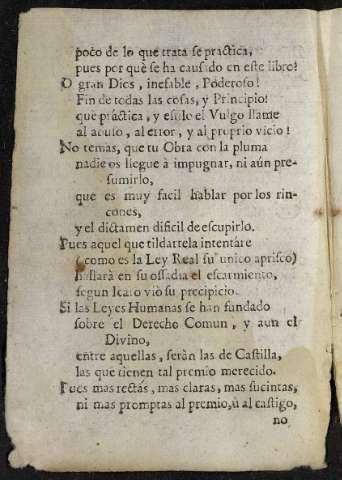 poco de lo que trata se practica,
pues por què se ha causado en este libro?
O gran Dios, inefable, Poderoso!
Fin de todas las cosas, y Principio!
que práctica, y estilo el Vulgo llame
al abuso, al error, y al proprio vicio!
No temas, que tu Obra con la pluma
nadie os llegue à impugnar, ni aún pre-
sumirlo,
que es muy facil hablar por los rin-
cones,
y el dictamen dificil de escupirlo.
Pues aquel que tildartela intentáre
(como es la Ley Real su unico aprisco)
hallarà en su ossadia el escarmiento,
segun Icaro viò su precipicio.
Si las Leyes Humanas se han fundado
sobre el Derecho Comun, y aun el
Divino,
entre aquellas, seràn las de Castilla,
las que tienen tal premio merecido.
Pues mas rectás, mas claras, mas sucintas,
ni mas promptas al premio, ù al castigo,
no